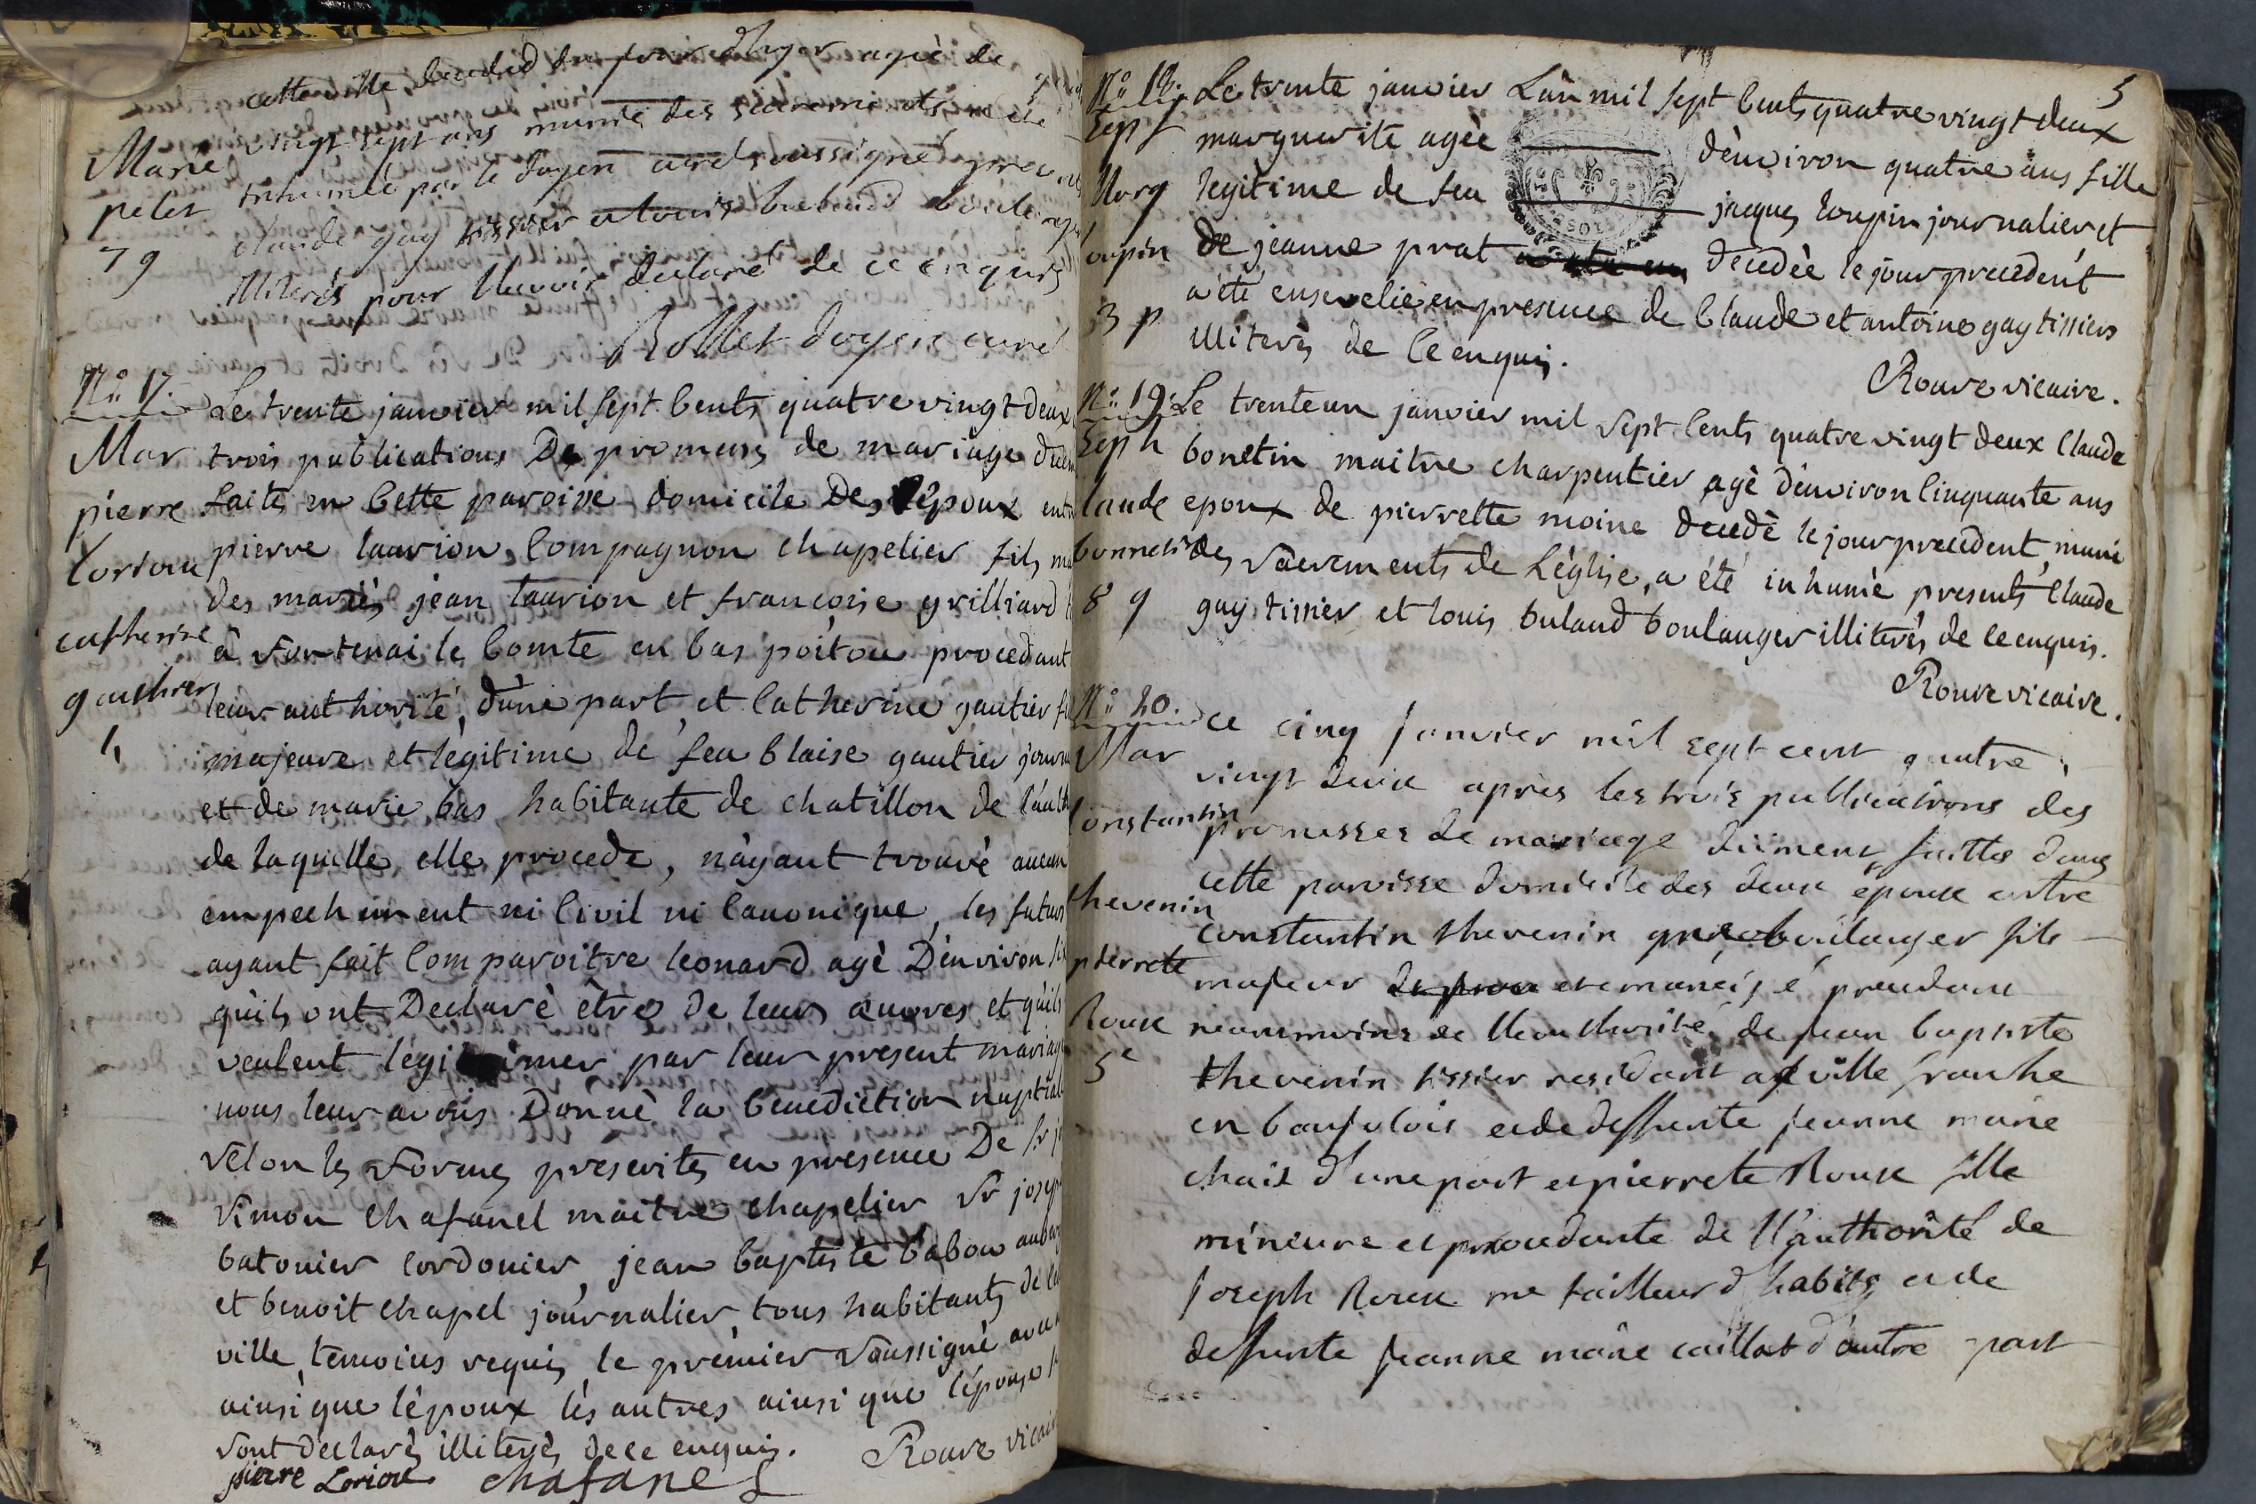 cette ville decedée du jour d'hyer agée de
vingt sept ans munie des sacrements a été
inhumée par le doyen curé soussigné presents
claude gay tissier et louis buland boulanger
illiterés pour l'avoir declaré de ce enquis
Rollet doyen curé
Marie
pelet
79
N.o 17.
Mar
pierre
Loriou
catherine
gauthier
4
Le trente janvier mil sept Cents quatre vingt deux
trois publications De promesses de mariage duem
faites en Cette paroisse domicile Des l'époux entre
pierre laurion, Compagnon chapelier fils ma
des mariés jean laurion et francoise grilliard
à fontenai le Comte en bas poitou procedant
leur authorité, d'une part, et Catherine gautier fi
majeure et légitime de feu blaise gautier journa
et de marie bas habitante de chatillon de l'auth
de laquelle elle procede, n'ayant trouvé aucun
empechement ni Civil ni Canonique, les futurs
ayant fait Comparoitre leonard agè D'environ six
qu'ils ont Declarè être De leurs œuvres et qu'ils
veulent legitimer par leur present mariage
nous leur avons Donnè la benediction nuptiale
selon les formes prescrites en presence De Sr
simon Chafanel maitre chapelier Sr joseph
batonier Cordonier, jean baptiste babou auberg
et benoit chapel journalier, tous habitants de la
ville, temoins requis, le prémier soussigné avec
ainsi que l'époux les autres ainsi que l'épouse
sont declarés illiterés de ce enquis.
Rouve vicaire
pierre Loriou chafanel
5
N.o 18.
Sep f
Marg
Loupin
3 p
Le trente janvier L'an mil sept Cents quatre vingt deux
marguerite agèe d'environ quatre ans fille
legitime de feu jacques Loupin journalier et
De jeanne prat decedèe le jour precedent
a été ensevelie en presence de Claude et antoine gay tissiers
illiterés de Ce enquis.
Rouve vicaire.
N.o 19.
Sep h
Claude
bonnetin
8 9
Le trente un janvier mil sept Cents quatre vingt deux Claude
bonetin maitre charpentier agè d'environ Cinquante ans
epoux de pierrette moine decedè le jour precedent, muni
des sacrements de L'église, a été inhumé presents, Claude
gay tissier et louis buland boulanger illiterés de ce enquis.
Rouve vicaire.
N.o 20.
Mar
Constantin
thevenin
pierrete
Roux
5e
Ce cinq janvier mil sept cent quatre
vingt deux après les trois publications des
promesses de mariage düment faittes dans
cette paroisse domicile des deux époux entre
constantin thevenin boulanger fils
majeur et emancipé procedant
neanmoins de l'authorité de jean baptiste
thevenin tissier residant a ville franche
en baujolois et de deffunte jeanne marie
chait d'une part et pierrete Roux fille
mineure et procedante de l'authorité de
joseph Roux me tailleur d'habits et de
deffunte jeanne marie caillat d'autre part